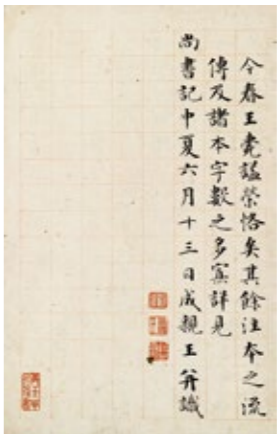 今春王薨諡榮恪矣其餘注本之流
傳及諸本字數之多寡詳見
尚書記中夏六月十三日成親王并識